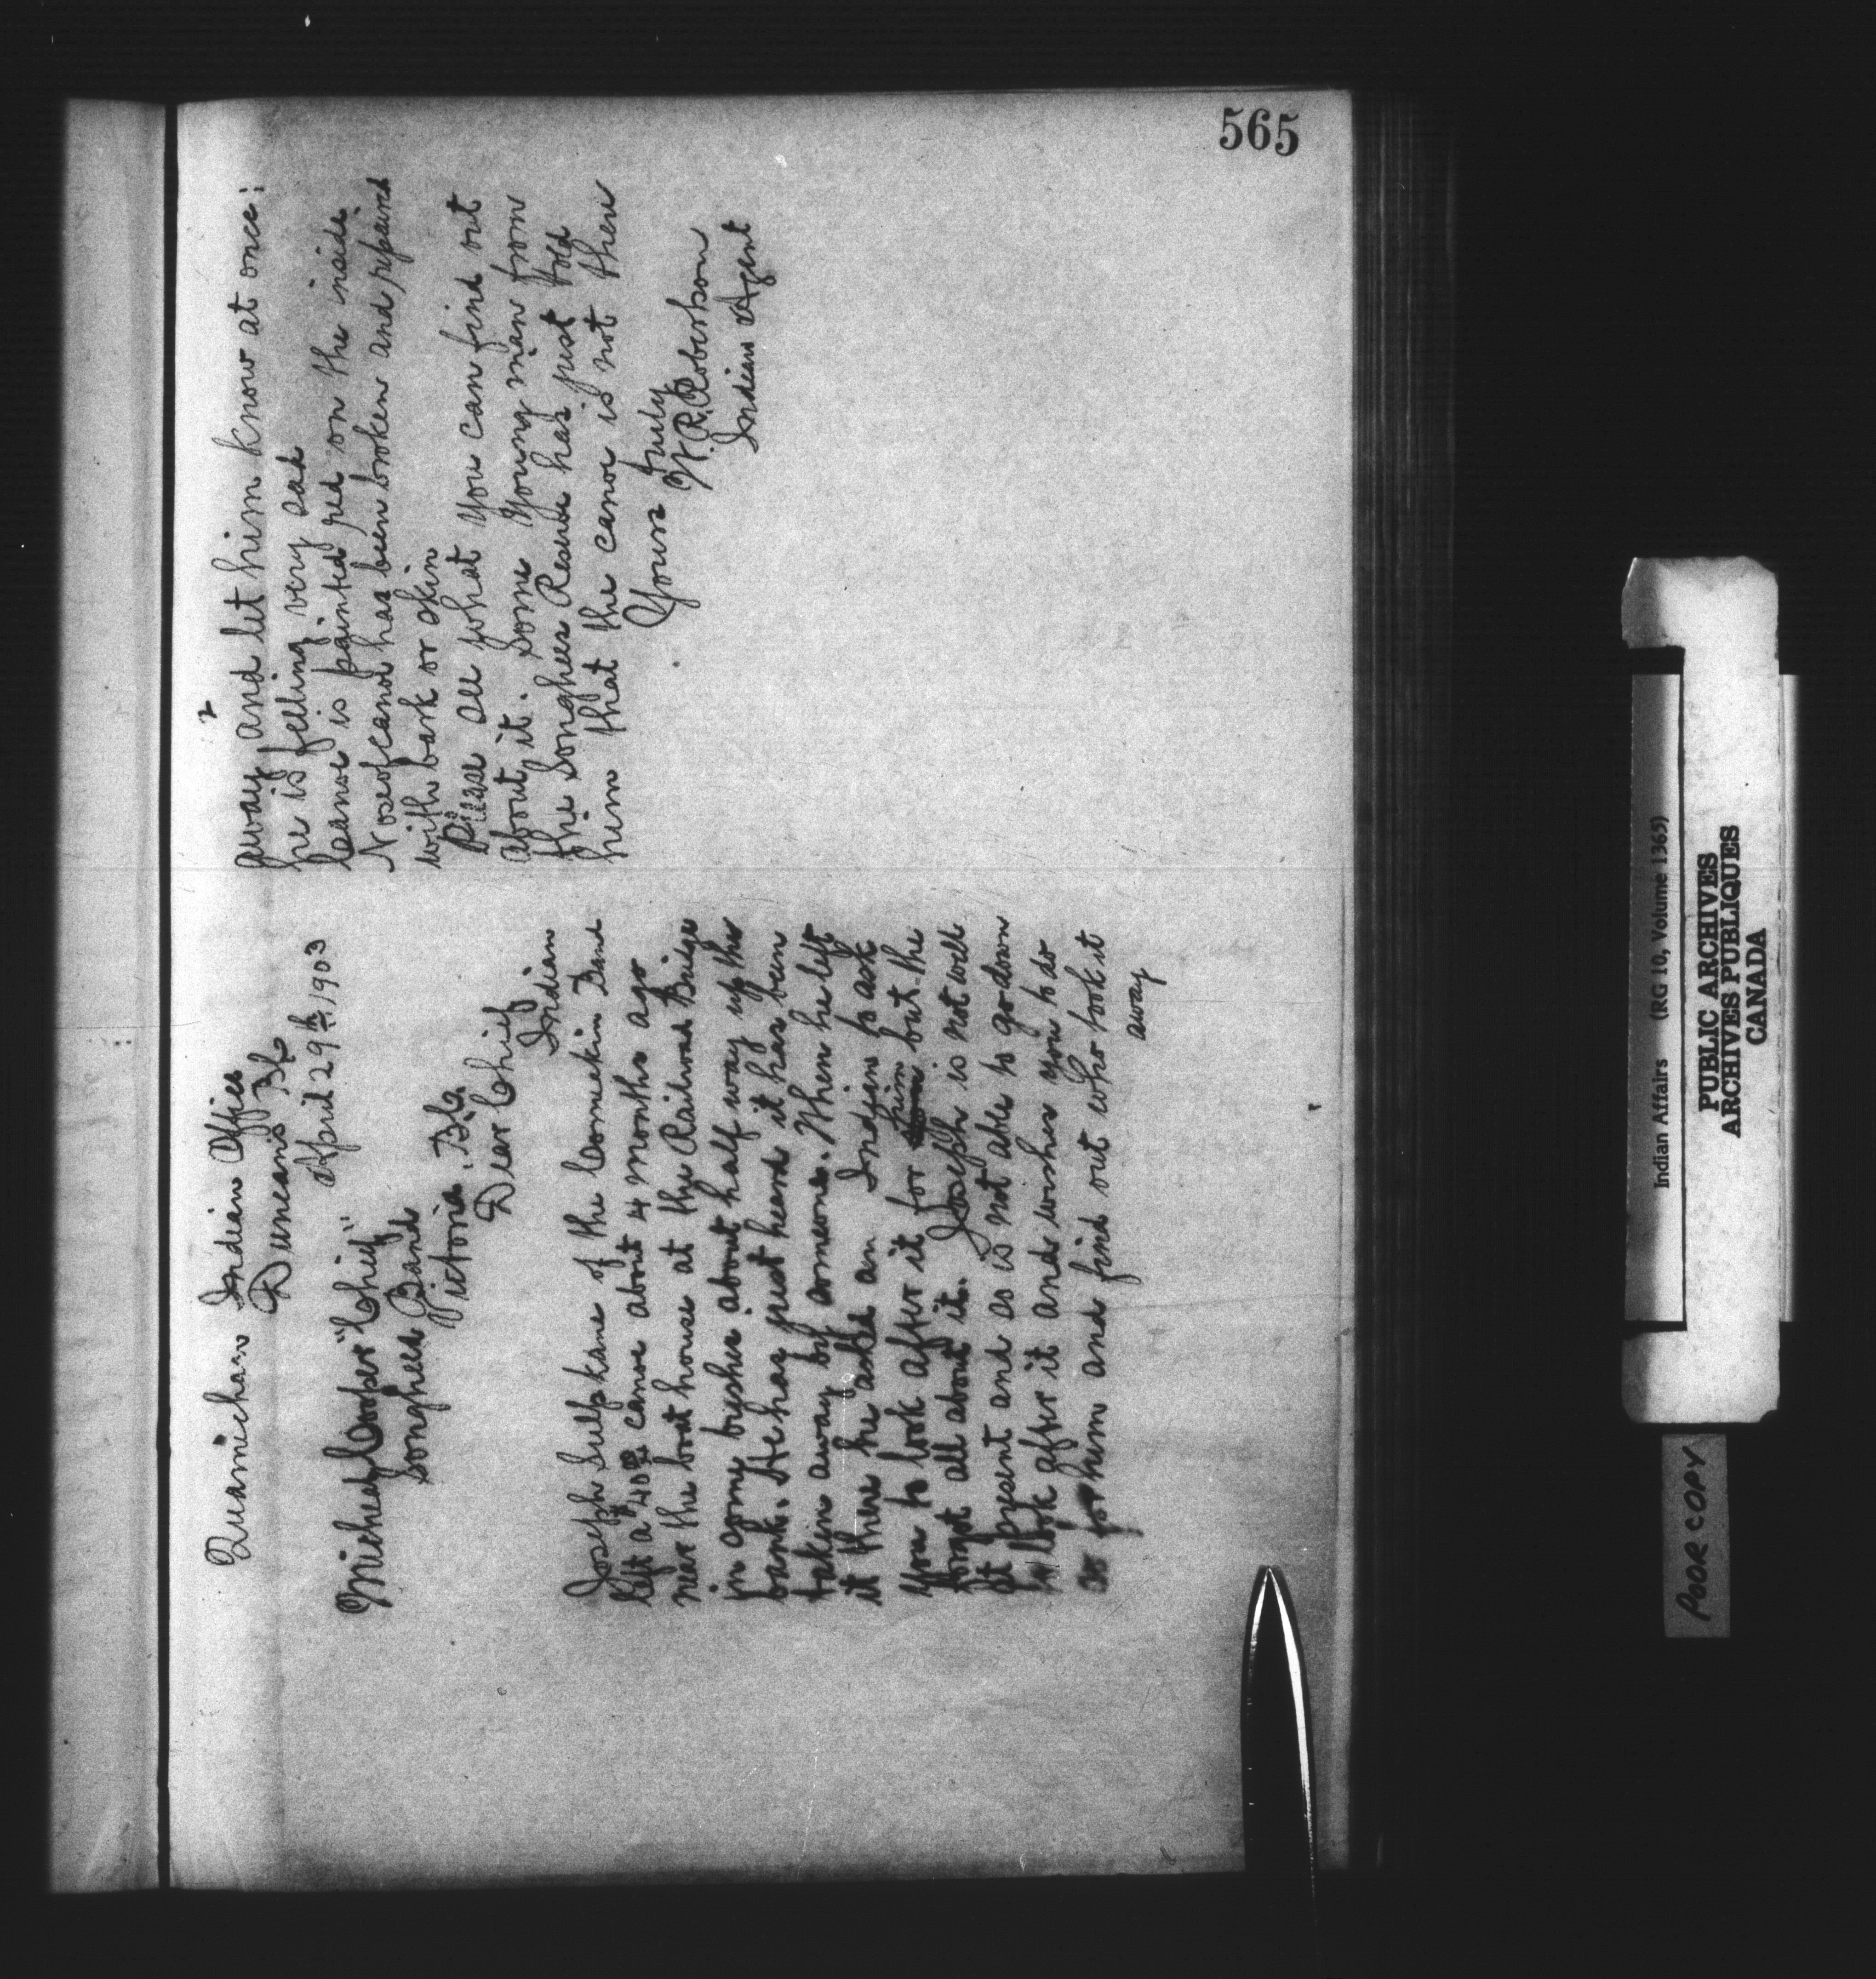 565
Quamichan Indian Office
Duncans BC
April 29th 1903
Micheal Cooper "Chief"
Songhees Band
Victoria. B.C.
Dear Chief
Indian
Joseph Sulfskane of the Comeakin Band
left a 40 00 canoe about 4 months ago
near the boat house at the Railroad Brige
in some bushes about half way up the
bank. He has just heard it has been
taken away by someone. When he left
it there he asked an Indian to ask
you to look after it for him but the
forgot all about it. Joseph is not well
at present and so is not able to go down
to look after it and wishes you to do
so for him and find out who took it
away
2
away and let him know at once;
he is felling very sad
Canoe is painted red on the inside
Nose of canoe has been broken and repaired
with bark or skin
Please see what you can find out
about it. Some young man from
the Songhees Reserve has just told
him that the canoe is not there
Yours truly
W.R. Robertson
Indian Agent
Indian Affairs (RG 10, Volume 1365)
PUBLIC ARCHIVES
ARCHIVES PUBLIQUES
CANADA
POOR COPY